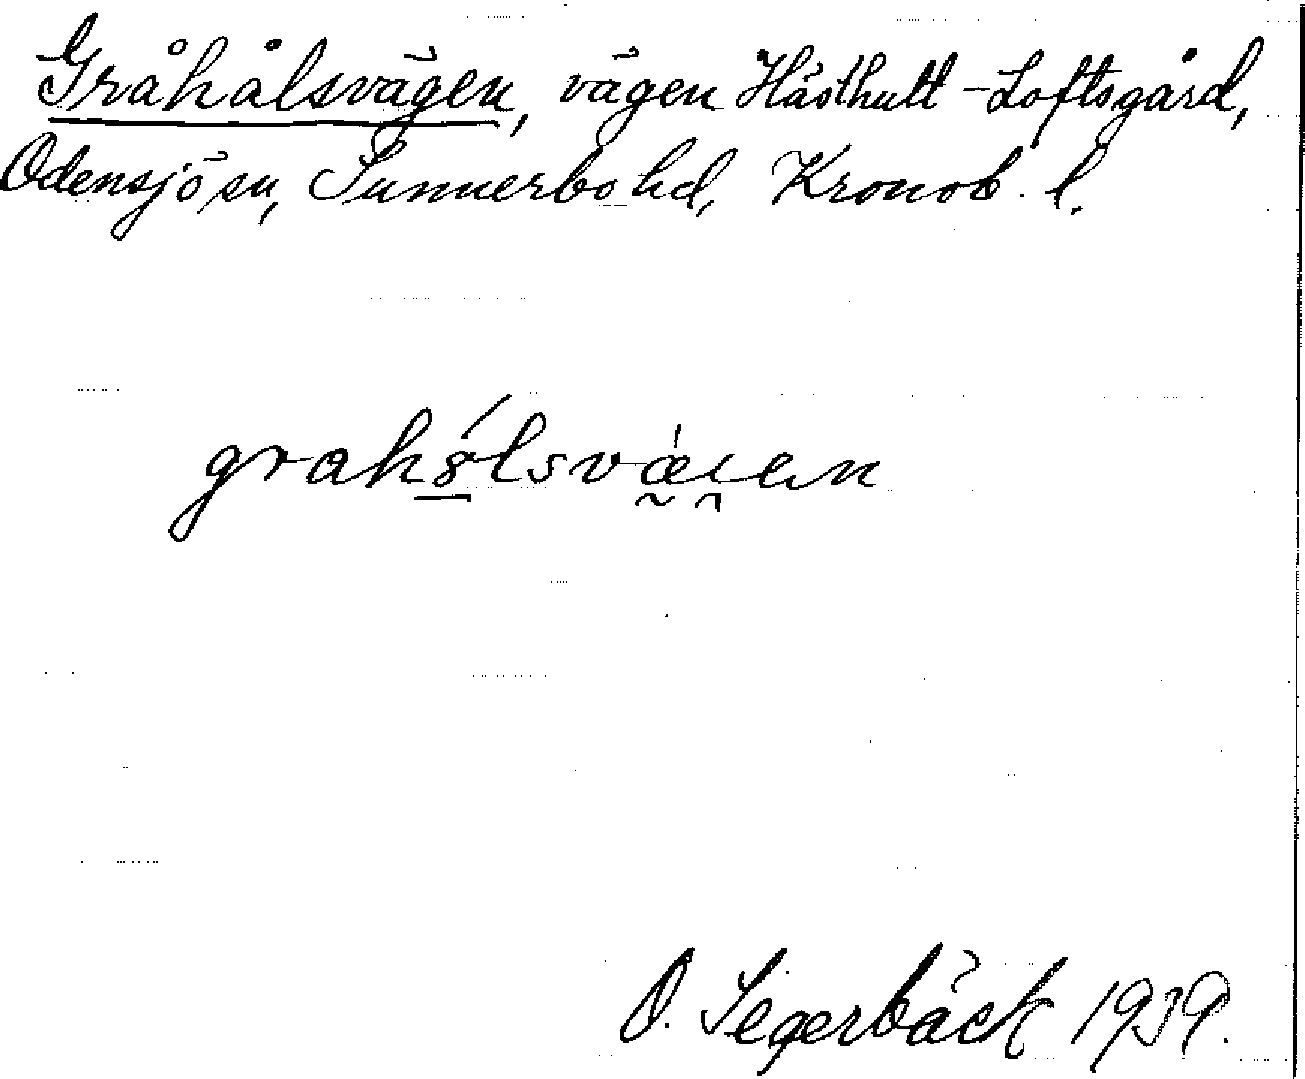 Gråhålsvägen, vägen Hästhult - Loftsgård,
Odensjö sn, Sunnerbo hd, Kronob. l.
O. Segerbäck 1939.